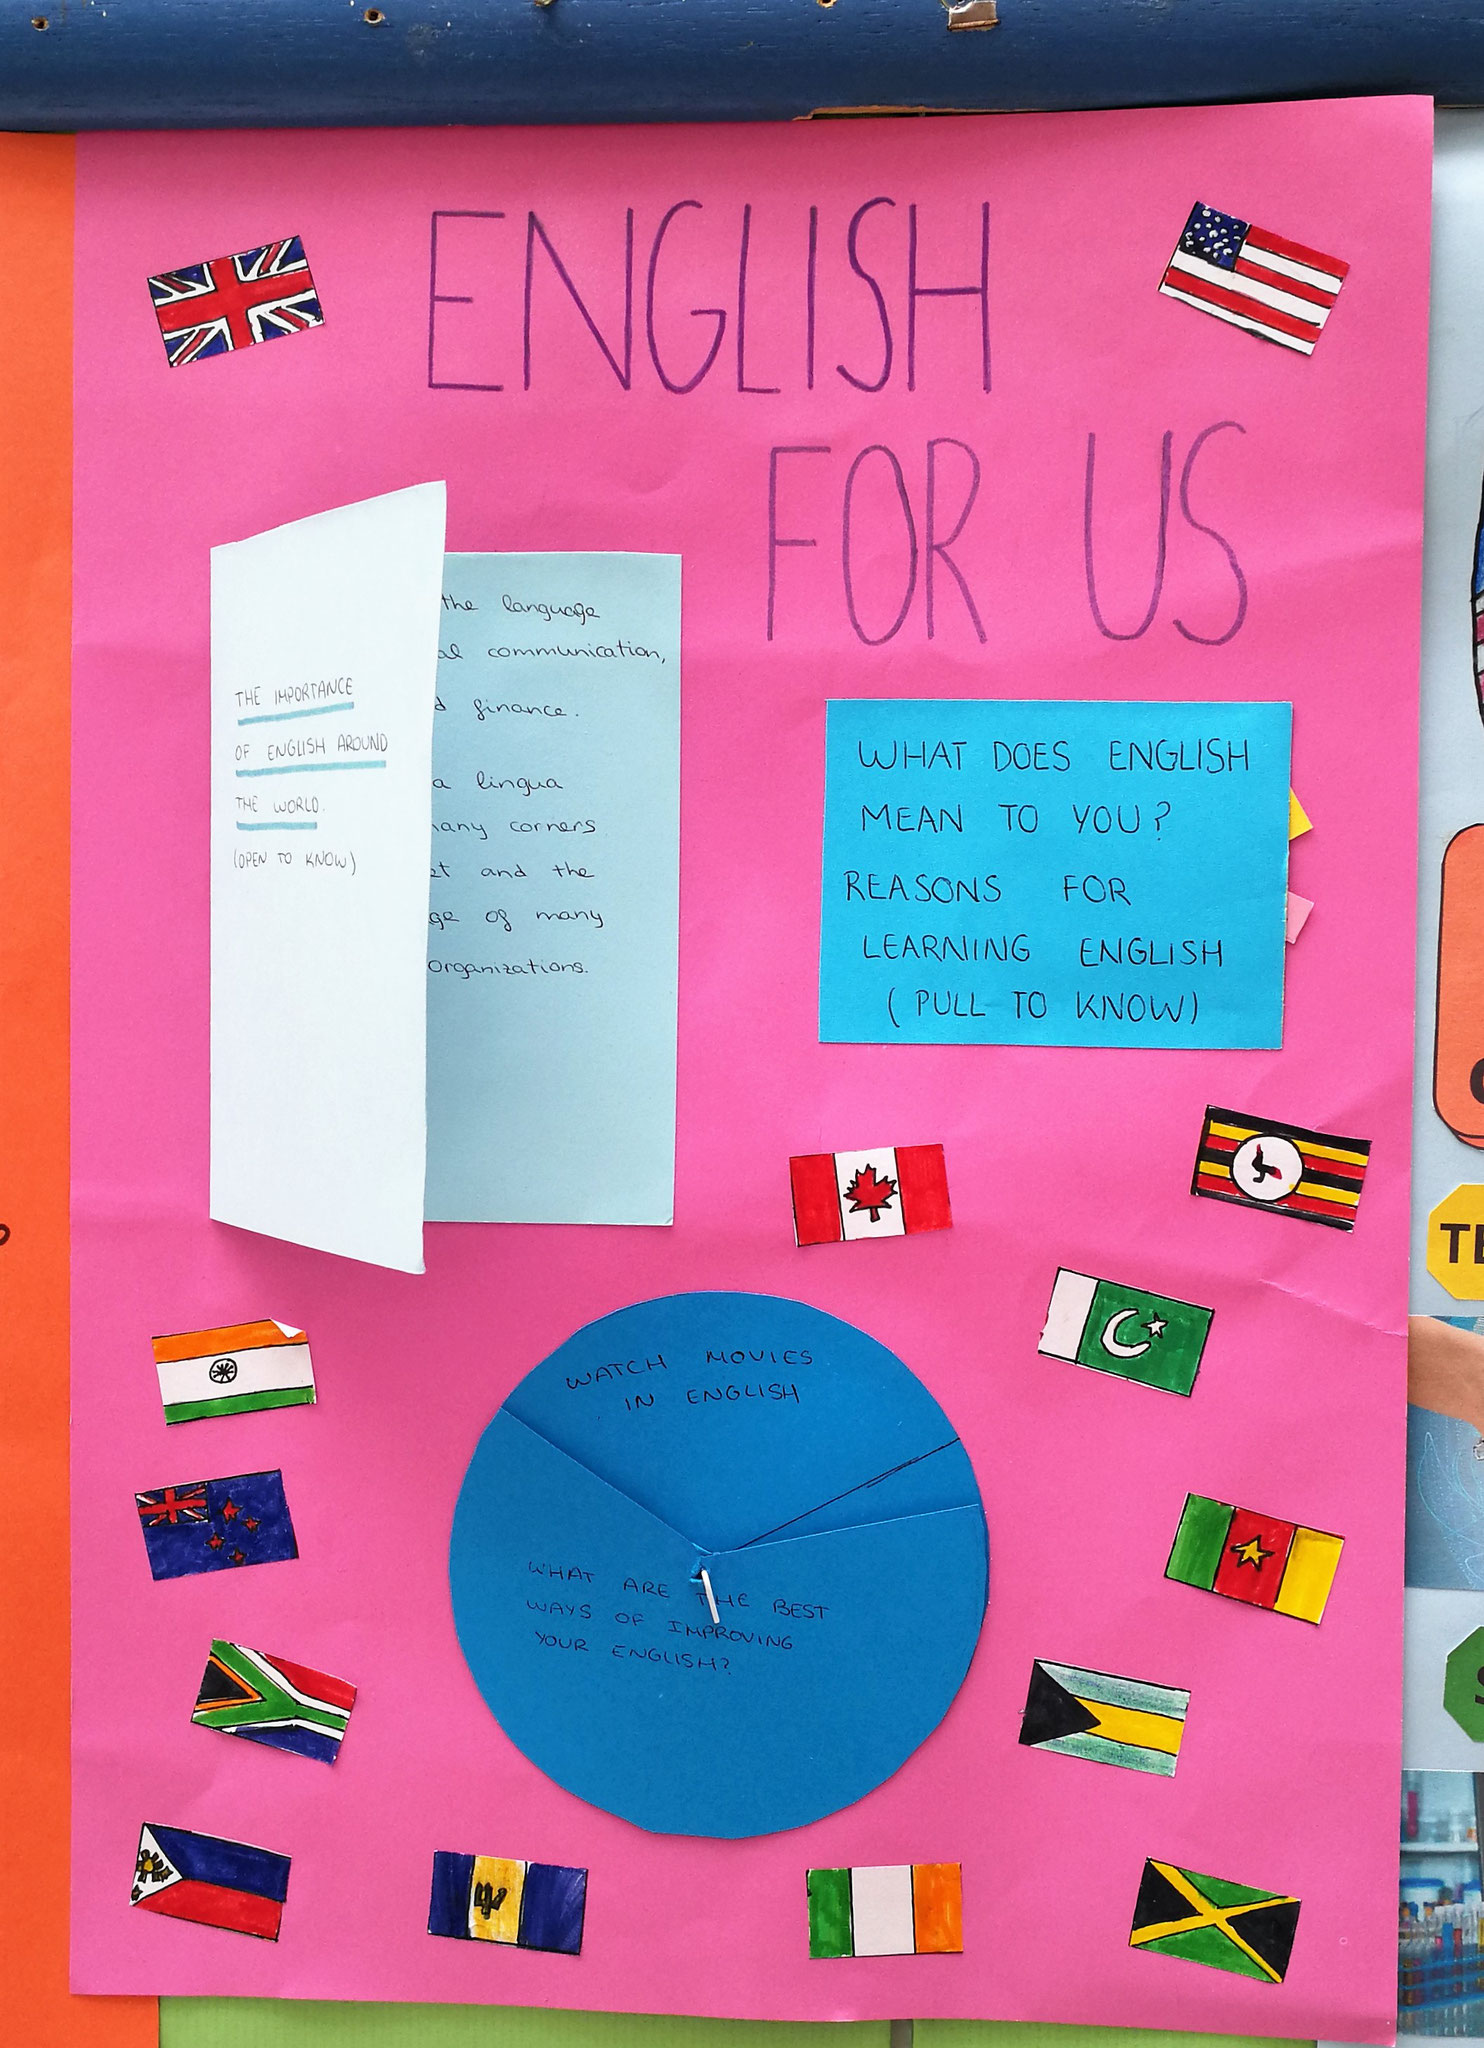 ENGLISH
FOR US
THE IMPORTANCE
OF ENGLISH AROUND
THE WORLD.
(OPEN TO KNOW)
the language
communication,
finance.
a lingua
corners
and the
of many
organizations.
WHAT DOES ENGLISH
MEAN TO YOU?
REASONS FOR
LEARNING ENGLISH
(PULL TO KNOW)
WATCH MOVIES
IN ENGLISH
WHAT ARE THE BEST
WAYS OF IMPROVING
YOUR ENGLISH?